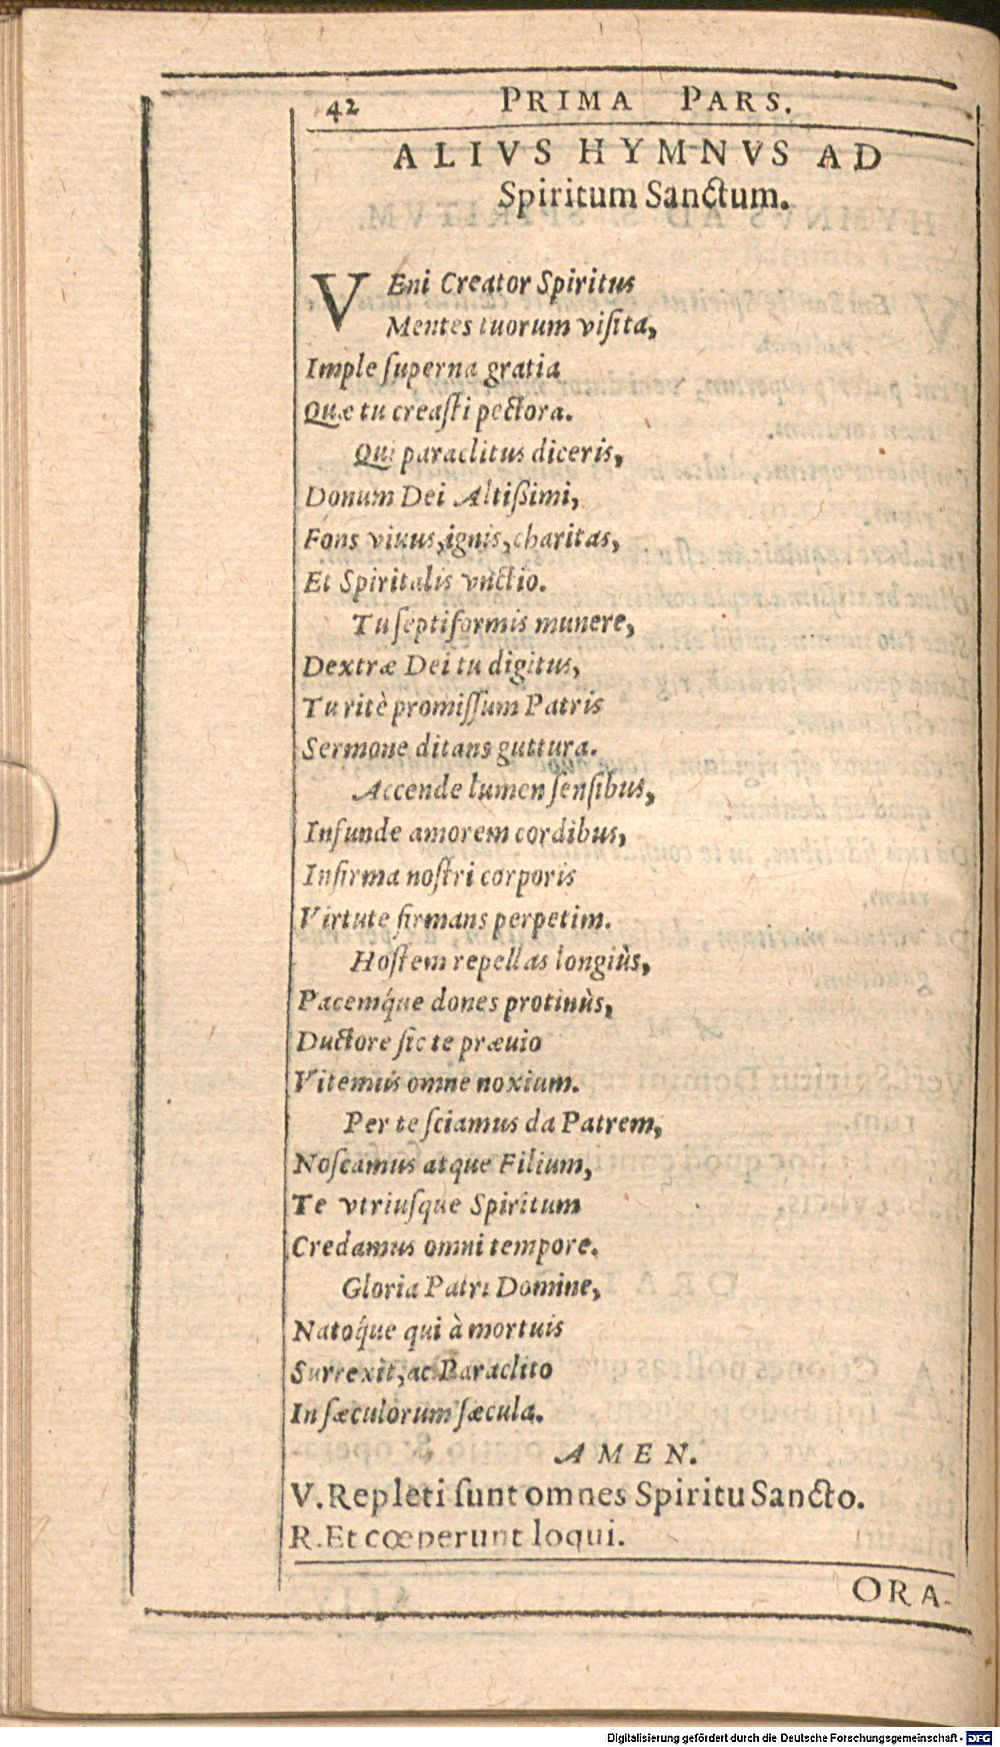 42 PRIMA PARS.
ALIVS HYMNVS AD
Spiritum Sanctum.
VEni Creator Spiritus
Mentes tuorum viſita,
Imple ſuperna gratia
Quæ tu creaſti pectora.
Qui paraclitus diceris,
Donum Dei Altiſsimi,
Fons viuus, ignis, charitas,
Et Spiritalis vnctio.
Tu ſeptiformis munere,
Dextræ Dei tu digitus,
Tu ritè promiſſum Patris
Sermone ditans guttura.
Accende lumen ſenſibus,
Infunde amorem cordibus,
Infirma noſtri corporis
Virtute firmans perpetim.
Hoſtem repellas longiùs,
Pacemq́ue dones protinùs,
Ductore ſic te præuio
Vitemus omne noxium.
Per te ſciamus da Patrem,
Noſcamus atque Filium,
Te vtriuſque Spiritum
Credamus omni tempore.
Gloria Patri Domine,
Natoq́ue qui à mortuis
Surrexit, ac Paraclito
In ſæculorum ſæcula.
AMEN.
V. Repleti ſunt omnes Spiritu Sancto.
R. Et cœperunt loqui.
ORA-
Digitalisierung gefördert durch die Deutsche Forschungsgemeinschaft - DFG